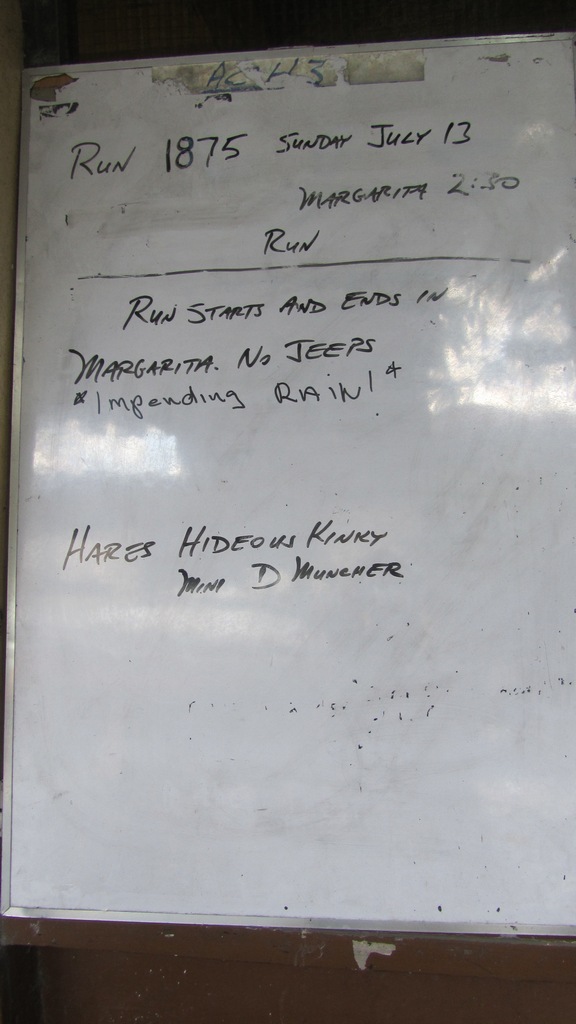 ACH3
RUN 1875 SUNDAY JULY 13
MARGARITA 2:30
RUN
RUN STARTS AND ENDS IN
MARGARITA. NO JEEPS
*Impending RAIN!*
HARES HIDEOUS KINKY
MINI D MUNCHER